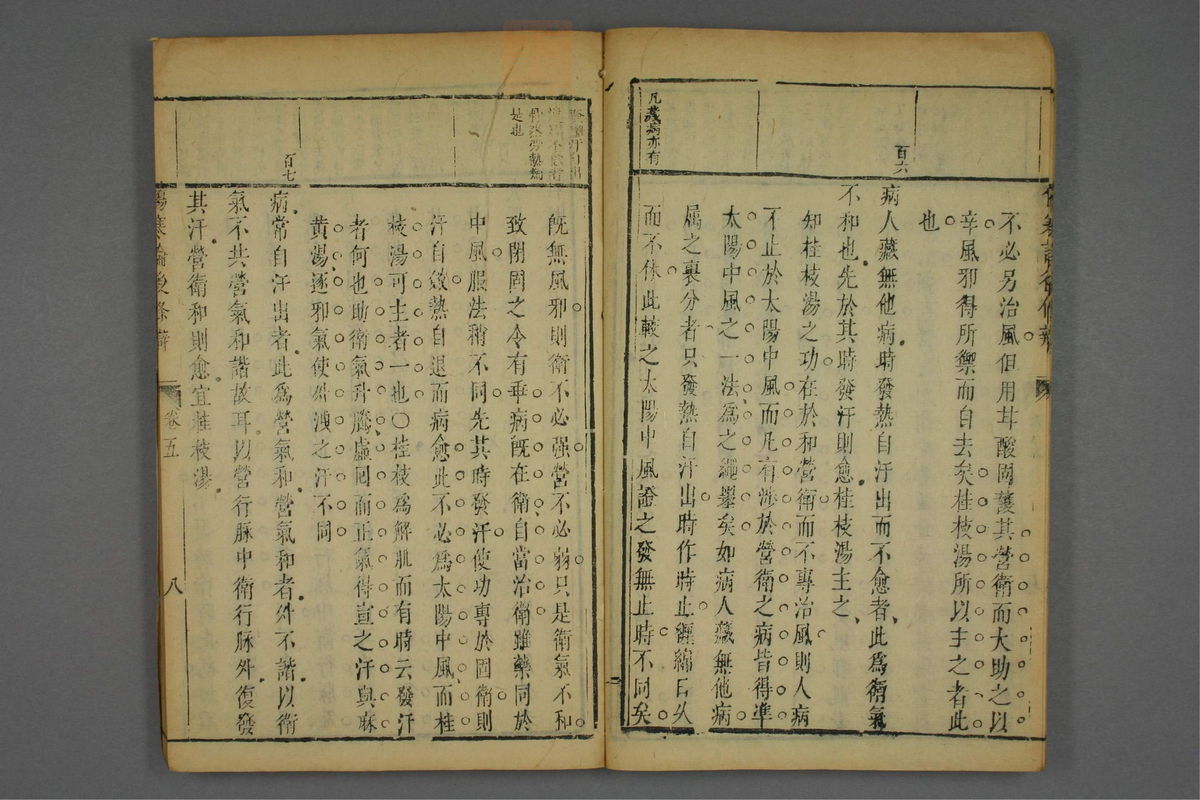 百六
凡蒸病亦有
不必另治風但用甘酸固護其營衛而大助之以
辛風邪得所禦而自去矣桂枝湯所以主之者此
也
病人藏無他病時發熱自汗出而不愈者此爲衛氣
不和也先於其時發汗則愈桂枝湯主之
知桂枝湯之功在於和營衛而不專治風則人病
不止於太陽中風而凡有涉於營衛之病皆得準
太陽中風之一法爲之繩墨矣如病人藏無他病
屬之裏分者只發熱自汗出時作時止纏綿日久
而不休此較之太陽中風證之發無止時不同矣
骨蒸勞熱
是也
百七
既無風邪則衛不必强營不必弱只是衛氣不和
致閉固之令有乖病既在衛自當治衛雖藥同於
中風服法稍不同先其時發汗使功專於固衛則
汗自斂熱自退而病愈此不必爲太陽中風而桂
枝湯可主者一也○桂枝爲解肌而有時云發汗
者何也助衛氣升騰虛回而正氣得宣之汗與麻
黄湯逐邪氣使外洩之汗不同
病常自汗出者此爲營氣和營氣和者外不諧以衛
氣不共營氣和諧故耳以營行脉中衛行脉外復發
其汗營衛和則愈宜桂枝湯
傷寒論後條辯
卷五
八